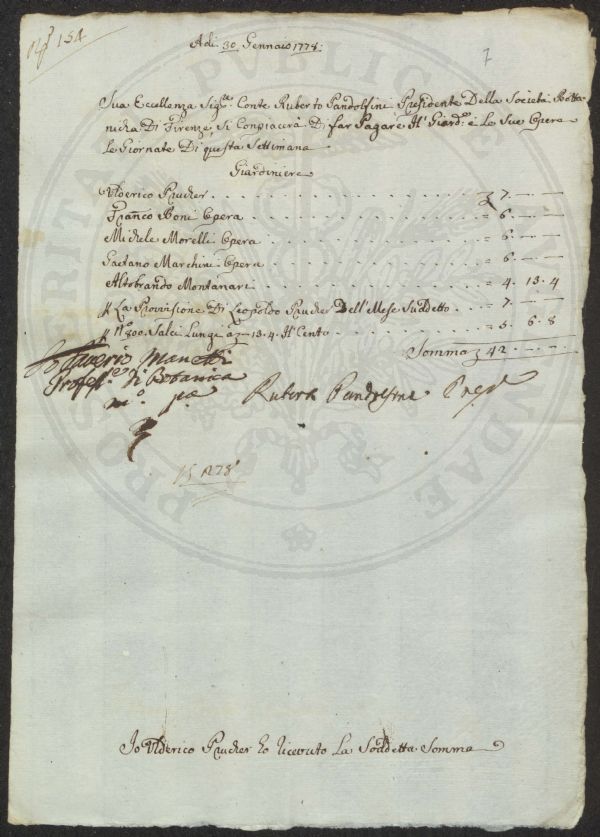 N° 154
Adi: 30 Gennaio 1778:
7
Sua Eccellenza Sigre. Conte Ruberto Pandolfini Presidente Della Società Botta
nicha Di Firenze Si Conpiacerà Di far Pagare Al' Giard.e e Le Sue Opera
Le Giornate Di questa Settimana
Giardiniere
Ulderico Prucker . . . . . . . 7. — —
Franco Boni Opera . . . . . . . = 6. — —
Michele Morelli Opera . . . . . . . = 6. — —
Gaetano Marchini Opera . . . . . . . = 6. — —
Altobrando Montanari . . . . . . . = 4. 13. 4
La Provisione Di Leopoldo Prucker Dell' Mese Suddetto . . 7. — —
N° 200. Salci Lunge a 13. 4. Il Cento . . . . = 5. 6. 8
Somma 42
Saverio Manetti
Profess.e di Botanica
m.o p.a
Ruberto Pandolfini Presid.
Io Ulderico Prucker ho ricevuto La Soddetta Somma